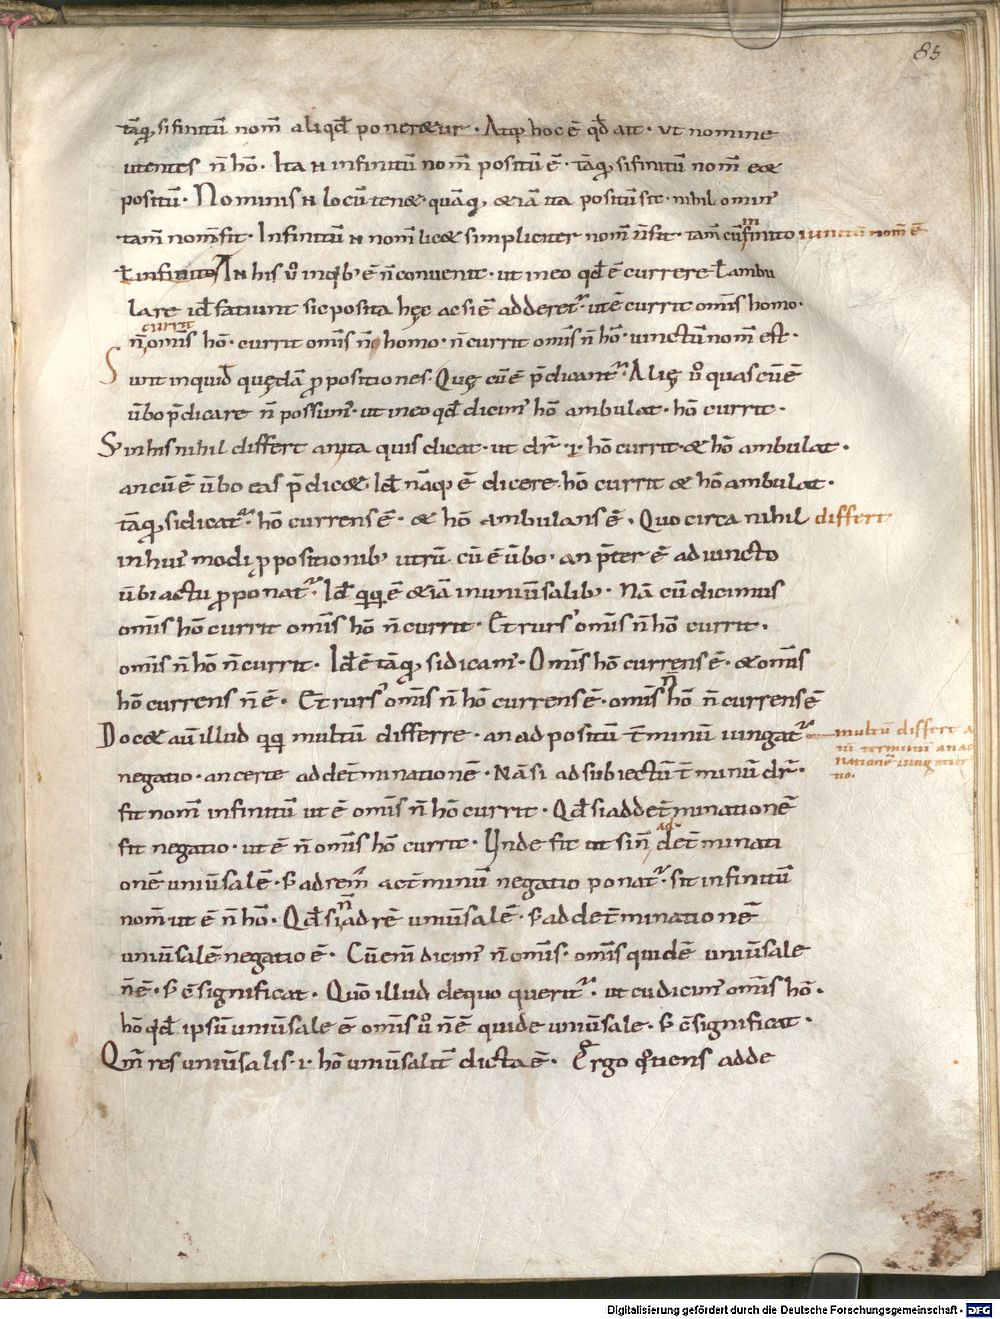 85
tāq; si finitū nom̄ aliqd̄ poneretur · Atq; hoc ē qd̄ ait · ut nomine
utentes n̄ hō · Ita n̄ infinitū nom̄ positū ē · tāq; si finitū nom̄ eēt
positū · Nominis n̄ locū tenet · quāq; etiā ita positū sit · nihil omin'
tam̄ nom̄ fit · Infinitū n̄ nom̄ licet simpliciter nom̄ n̄ sit · tam̄ cū infinito iunctū nom̄ ē
ł infinitos In his ū inqb; ē n̄ convenit · ut in eo qd̄ ē currere ł ambu
lare id̄ faciunt sic posita hęc ac si ē adderet᷑ · ut ē currit omīs homo ·
currit
n̄ omīs hō · currit omīs n̄ homo · n̄ currit omīs n̄ hō · iunctū nom̄ est ·
Sunt inquid quędā ppositiones · Quę cū ē p̄dicant᷑ · Alię ū quas cū ē
ūbo p̄dicare n̄ possum' · ut in eo qd̄ dicim' hō ambulat · hō currit ·
S; in his nihil differt an ita quis dicat · ut dr᷑ · i · hō currit · et hō ambulat ·
an cū ē ūbo eas p̄dicet · Id̄ nāq; ē dicere hō currit et hō ambulat ·
tāq; si dicat᷑ · hō currens ē · et hō ambulans ē · Quo circa nihil differt
in hui' modi ppositionib; utrū cū ē ūbo · an p̄ter ē adiuncto
ūbi actu pponat᷑ · Id̄ qq; ē etiā in uniūsalib; · Nā cū dicimus
omīs hō currit omīs hō n̄ currit · Et rurs' omīs n̄ hō currit ·
omīs n̄ hō n̄ currit · Id̄ ē tāq; si dicam' · Omīs hō currens ē · et omīs
hō currens n̄ ē · Et rurs' omīs n̄ hō currens ē · omīs n̄ hō n̄ currens ē
Docet aū illud qq; multū differre · an ad positū t̄minū iungat᷑
multū differt
negatio · an certe ad det̄minationē · Nā si ad subiectū t̄minū dr᷑ ·
fit nom̄ infinitū ut ē omīs n̄ hō currit · Qd̄ si ad det̄minationē
fit negatio · ut ē n̄ omīs hō currit · Unde fit ut si n̄ ad det̄minati
onē uniūsalē · s; ad rem̄ ac t̄minū negatio ponat᷑ · sit infinitū
nom̄ ut ē n̄ hō · Qd̄ si n̄ ad rē uniūsalē · s; ad det̄minationē
uniūsalē negatio ē · Cū em̄ dicim' n̄ omīs · omīs quidē uniūsale
n̄ ē · s; c̄significat · Quō illud de quo querit᷑ · ut cū dicim' omīs hō ·
hō qd̄ ipsū uniūsale ē omīs ū n̄ ē quide uniūsale · s; c̄significat ·
Qm̄ res uniūsalis · i · hō uniūsalit̄ dicta ē · Ergo qtiens adde
Digitalisierung gefördert durch die Deutsche Forschungsgemeinschaft · DFG